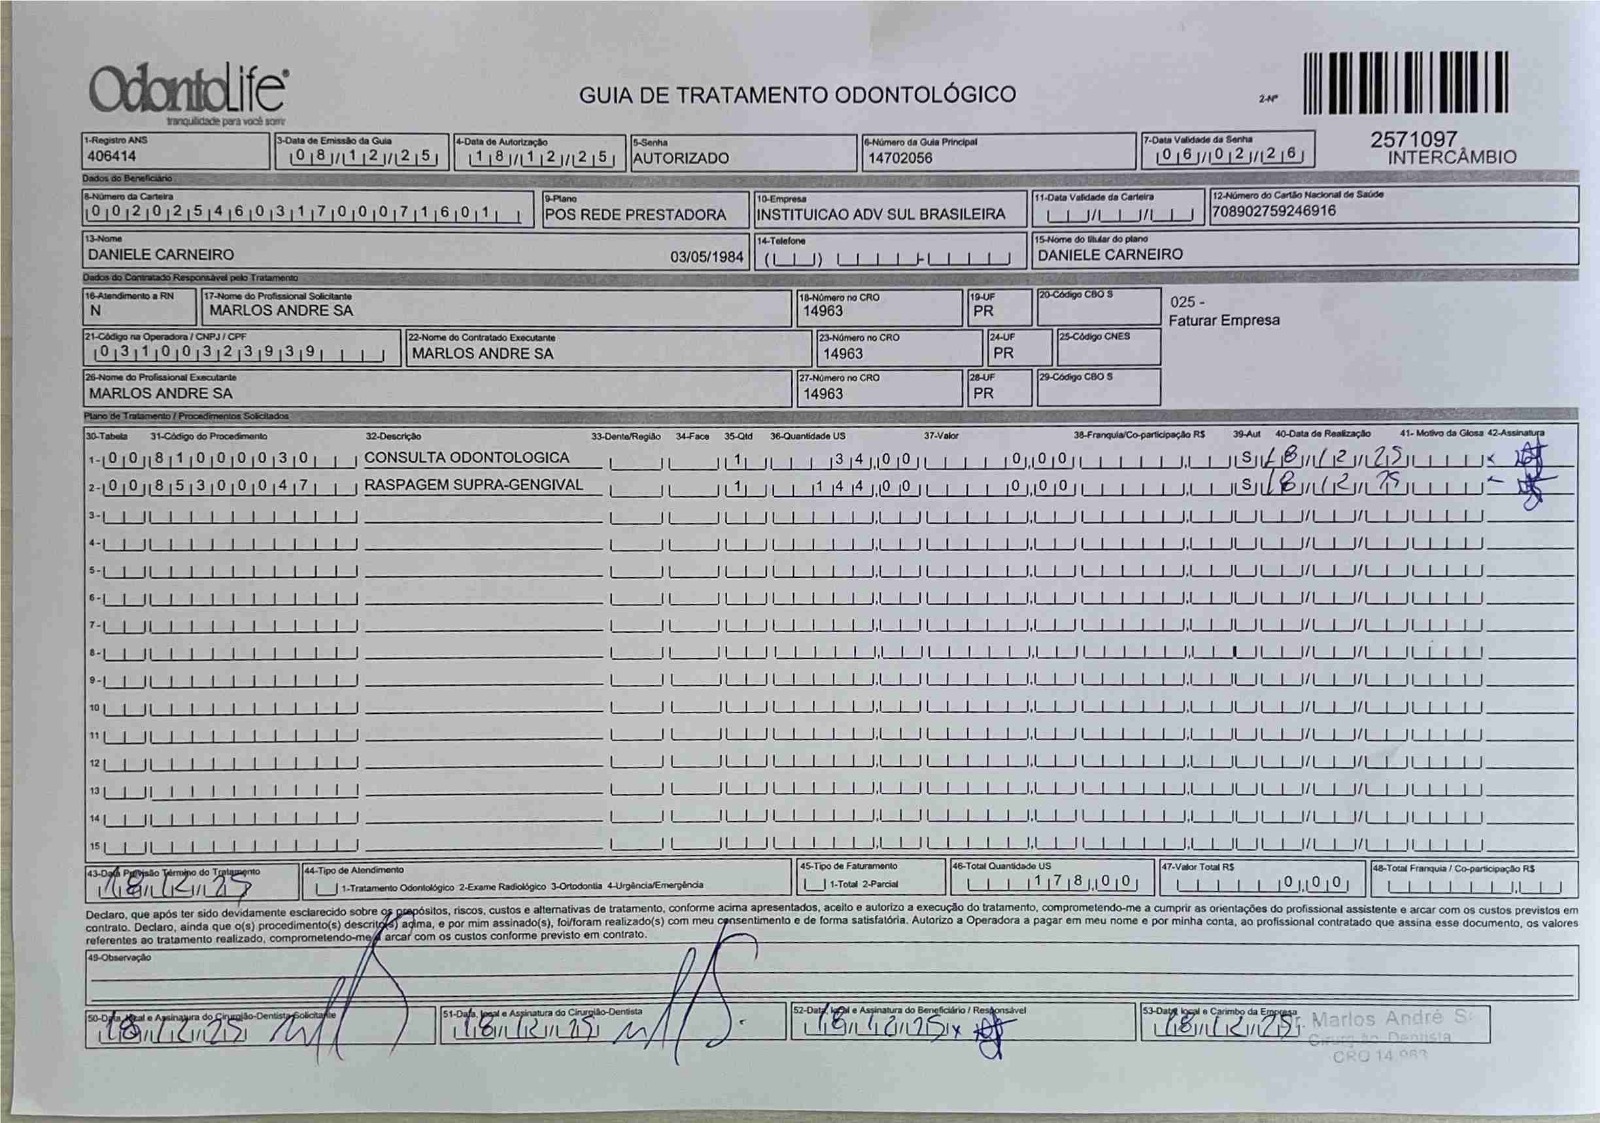 OdontoLife
tranquilidade para você sorrir
GUIA DE TRATAMENTO ODONTOLÓGICO
2-Nº
2571097
INTERCÂMBIO
1-Registro ANS
406414
3-Data de Emissão da Guia
08/12/25
4-Data de Autorização
18/12/25
5-Senha
AUTORIZADO
6-Número da Guia Principal
14702056
7-Data Validade da Senha
06/02/26
Dados do Beneficiário
8-Número da Carteira
00202546031700071601
9-Plano
POS REDE PRESTADORA
10-Empresa
INSTITUICAO ADV SUL BRASILEIRA
11-Data Validade da Carteira
12-Número do Cartão Nacional de Saúde
708902759246916
13-Nome
DANIELE CARNEIRO 03/05/1984
14-Telefone
15-Nome do titular do plano
DANIELE CARNEIRO
Dados do Contratado Responsável pelo Tratamento
16-Atendimento a RN
N
17-Nome do Profissional Solicitante
MARLOS ANDRE SA
18-Número no CRO
14963
19-UF
PR
20-Código CBO S
025 -
Faturar Empresa
21-Código na Operadora / CNPJ / CPF
03100323939
22-Nome do Contratado Executante
MARLOS ANDRE SA
23-Número no CRO
14963
24-UF
PR
25-Código CNES
26-Nome do Profissional Executante
MARLOS ANDRE SA
27-Número no CRO
14963
28-UF
PR
29-Código CBO S
Plano de Tratamento / Procedimentos Solicitados
30-Tabela 31-Código do Procedimento 32-Descrição 33-Dente/Região 34-Face 35-Qtd 36-Quantidade US 37-Valor 38-Franquia/Co-participação R$ 39-Aut 40-Data de Realização 41- Motivo da Glosa 42-Assinatura
1- 00 81000030 CONSULTA ODONTOLOGICA 1 34,00 0,00 S 18/12/25 x
2- 00 85300047 RASPAGEM SUPRA-GENGIVAL 1 144,00 0,00 S 18/12/25
3-
4-
5-
6-
7-
8-
9-
10
11
12
13
14
15
43-Data Previsão Término do Tratamento
18/12/25
44-Tipo de Atendimento
1-Tratamento Odontológico 2-Exame Radiológico 3-Ortodontia 4-Urgência/Emergência
45-Tipo de Faturamento
1-Total 2-Parcial
46-Total Quantidade US
178,00
47-Valor Total R$
0,00
48-Total Franquia / Co-participação R$
Declaro, que após ter sido devidamente esclarecido sobre os propósitos, riscos, custos e alternativas de tratamento, conforme acima apresentados, aceito e autorizo a execução do tratamento, comprometendo-me a cumprir as orientações do profissional assistente e arcar com os custos previstos em
contrato. Declaro, ainda que o(s) procedimento(s) descrito(s) acima, e por mim assinado(s), foi/foram realizado(s) com meu consentimento e de forma satisfatória. Autorizo a Operadora a pagar em meu nome e por minha conta, ao profissional contratado que assina esse documento, os valores
referentes ao tratamento realizado, comprometendo-me a arcar com os custos conforme previsto em contrato.
49-Observação
50-Data, local e Assinatura do Cirurgião-Dentista Solicitante
18/12/25
51-Data, local e Assinatura do Cirurgião-Dentista
18/12/25
52-Data, local e Assinatura do Beneficiário / Responsável
18/12/25 x
53-Data, local e Carimbo da Empresa
18/12/25
Dr. Marlos André S
Cirurgião Dentista
CRO 14.963